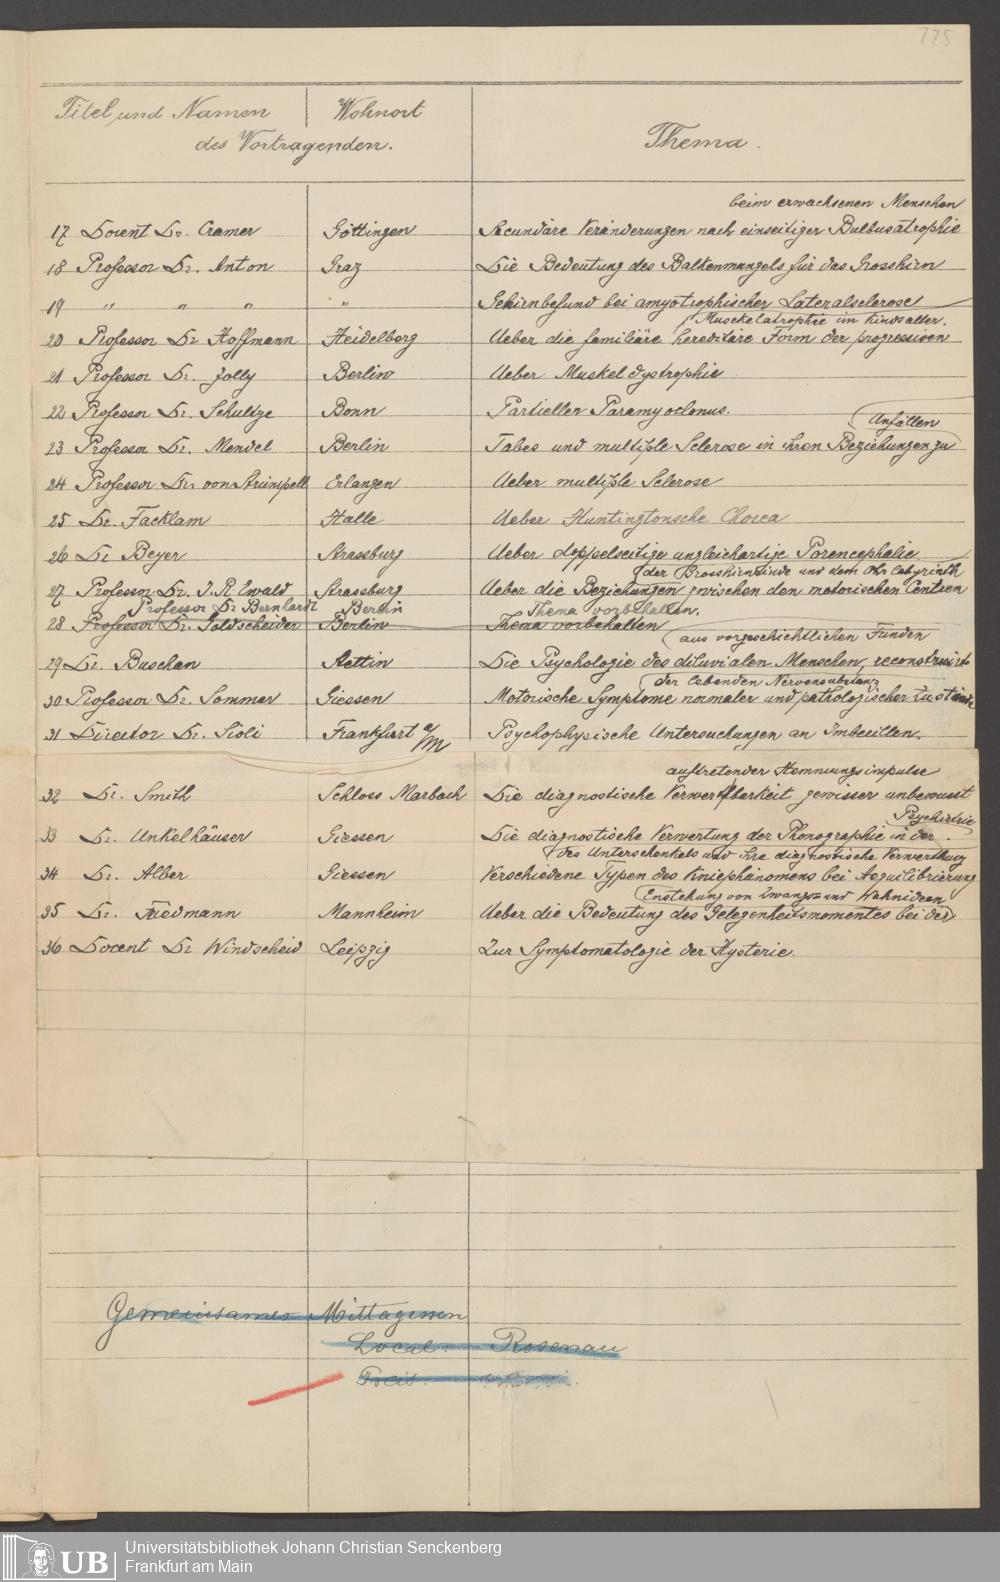 225
Titel und Namen Wohnort
des Vortragenden. Thema.
beim erwachsenen Menschen
17 Docent Dr. Cramer Göttingen Secundäre Veränderungen nach einseitiger Bulbusatrophie
18 Professor Dr. Anton Graz Die Bedeutung des Balkenmangels für das Grosshirn
19 " " " " Gehirnbefund bei amyotrophischer Lateralsclerose
Muskelatrophie im Kindsalter.
20 Professor Dr Hoffmann Heidelberg Ueber die familiäre hereditäre Form der progressiven
21 Professor Dr. Jolly Berlin Ueber Muskeldystrophie
22 Professor Dr. Schultze Bonn Partieller Paramyoclonus.
Anfällen
23 Professor Dr. Mendel Berlin Tabes und multiple Sclerose in ihren Beziehungen zu
24 Professor Dr. von Strümpell Erlangen Ueber multiple Sclerose
25 Dr. Facklam Halle Ueber Huntingtonsche Chorea
26 Dr Beyer Strassburg Ueber doppelseitige ungleichartige Porencephalie
der Grosshirnrinde und dem Ohrlabyrinth
27 Professor Dr. J. R. Ewald Strassburg Ueber die Beziehungen zwischen den motorischen Centren
Professor Dr Bernhardt Berlin Thema vorbehalten.
28 Professor Dr. Goldscheider Berlin Thema vorbehalten
aus vorgeschichtlichen Funden
29 Dr. Buschan Stettin Die Psychologie des diluvialen Menschen, reconstruirt
der lebenden Nervensubstanz
30 Professor Dr. Sommer Giessen Motorische Symptome normaler und pathologischer Zustände
31 Director Dr. Sioli Frankfurt a/M Psychophysische Untersuchungen an Imbecillen.
auftretender Hemmungsimpulse
32 Dr. Smith Schloss Marbach Die diagnostische Verwertbarkeit gewisser unbewusst
Psychiatrie
33 Dr. Unkelhäuser Giessen Die diagnostische Verwertung der Phonographie in der
des Unterschenkels und ihre diagnostische Verwerthung
34 Dr. Alber Giessen Verschiedene Typen des Kniephänomens bei Aequilibrierung
Enstehung von Zwangs und Wahnideen
35 Dr. Friedmann Mannheim Ueber die Bedeutung des Gelegenheitsmomentes bei der
36 Docent Dr Windscheid Leipzig Zur Symptomatologie der Hysterie.
Gemeinsames Mittagessen
Local: Rosenau
Preis
Universitätsbibliothek Johann Christian Senckenberg
UB Frankfurt am Main